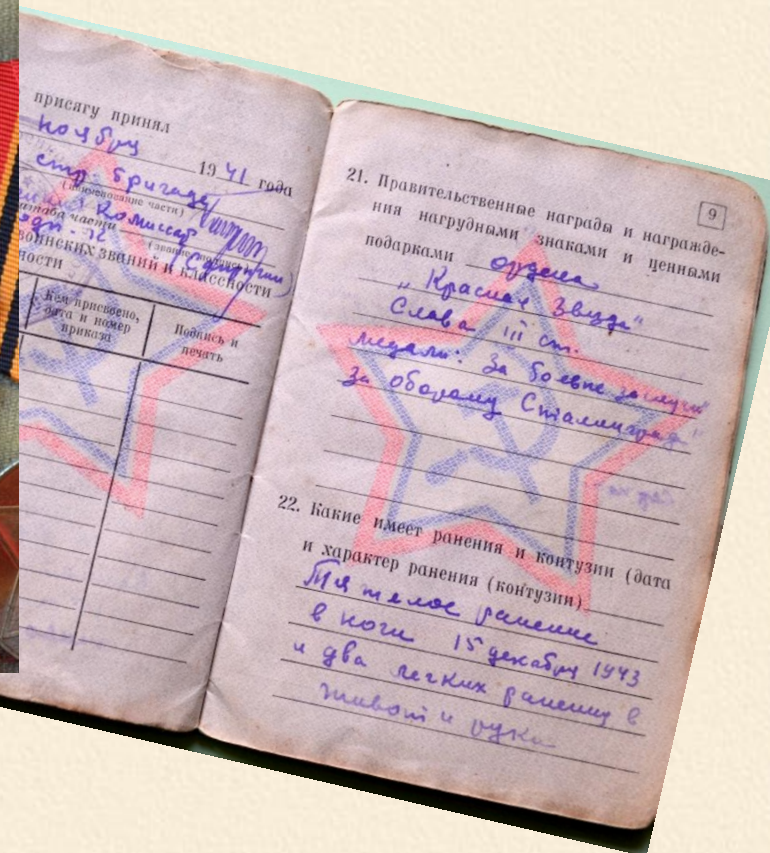 присягу принял
ноября
1941 года
стр. бригаде
(наименование части)
штаба части Комиссар
воинских званий и классности
Кем присвоено, дата и номер приказа
Подпись и печать
9
21. Правительственные награды и награжде-
ния нагрудными знаками и ценными
подарками ордена
„Красная Звезда"
Слава III ст.
медали: За боевые заслуги
За оборону Сталинграда"
22. Какие имеет ранения и контузии (дата
и характер ранения (контузии)
Тяжелое ранение
в ноги 15 декабря 1943
и два легких ранения в
живот и руки